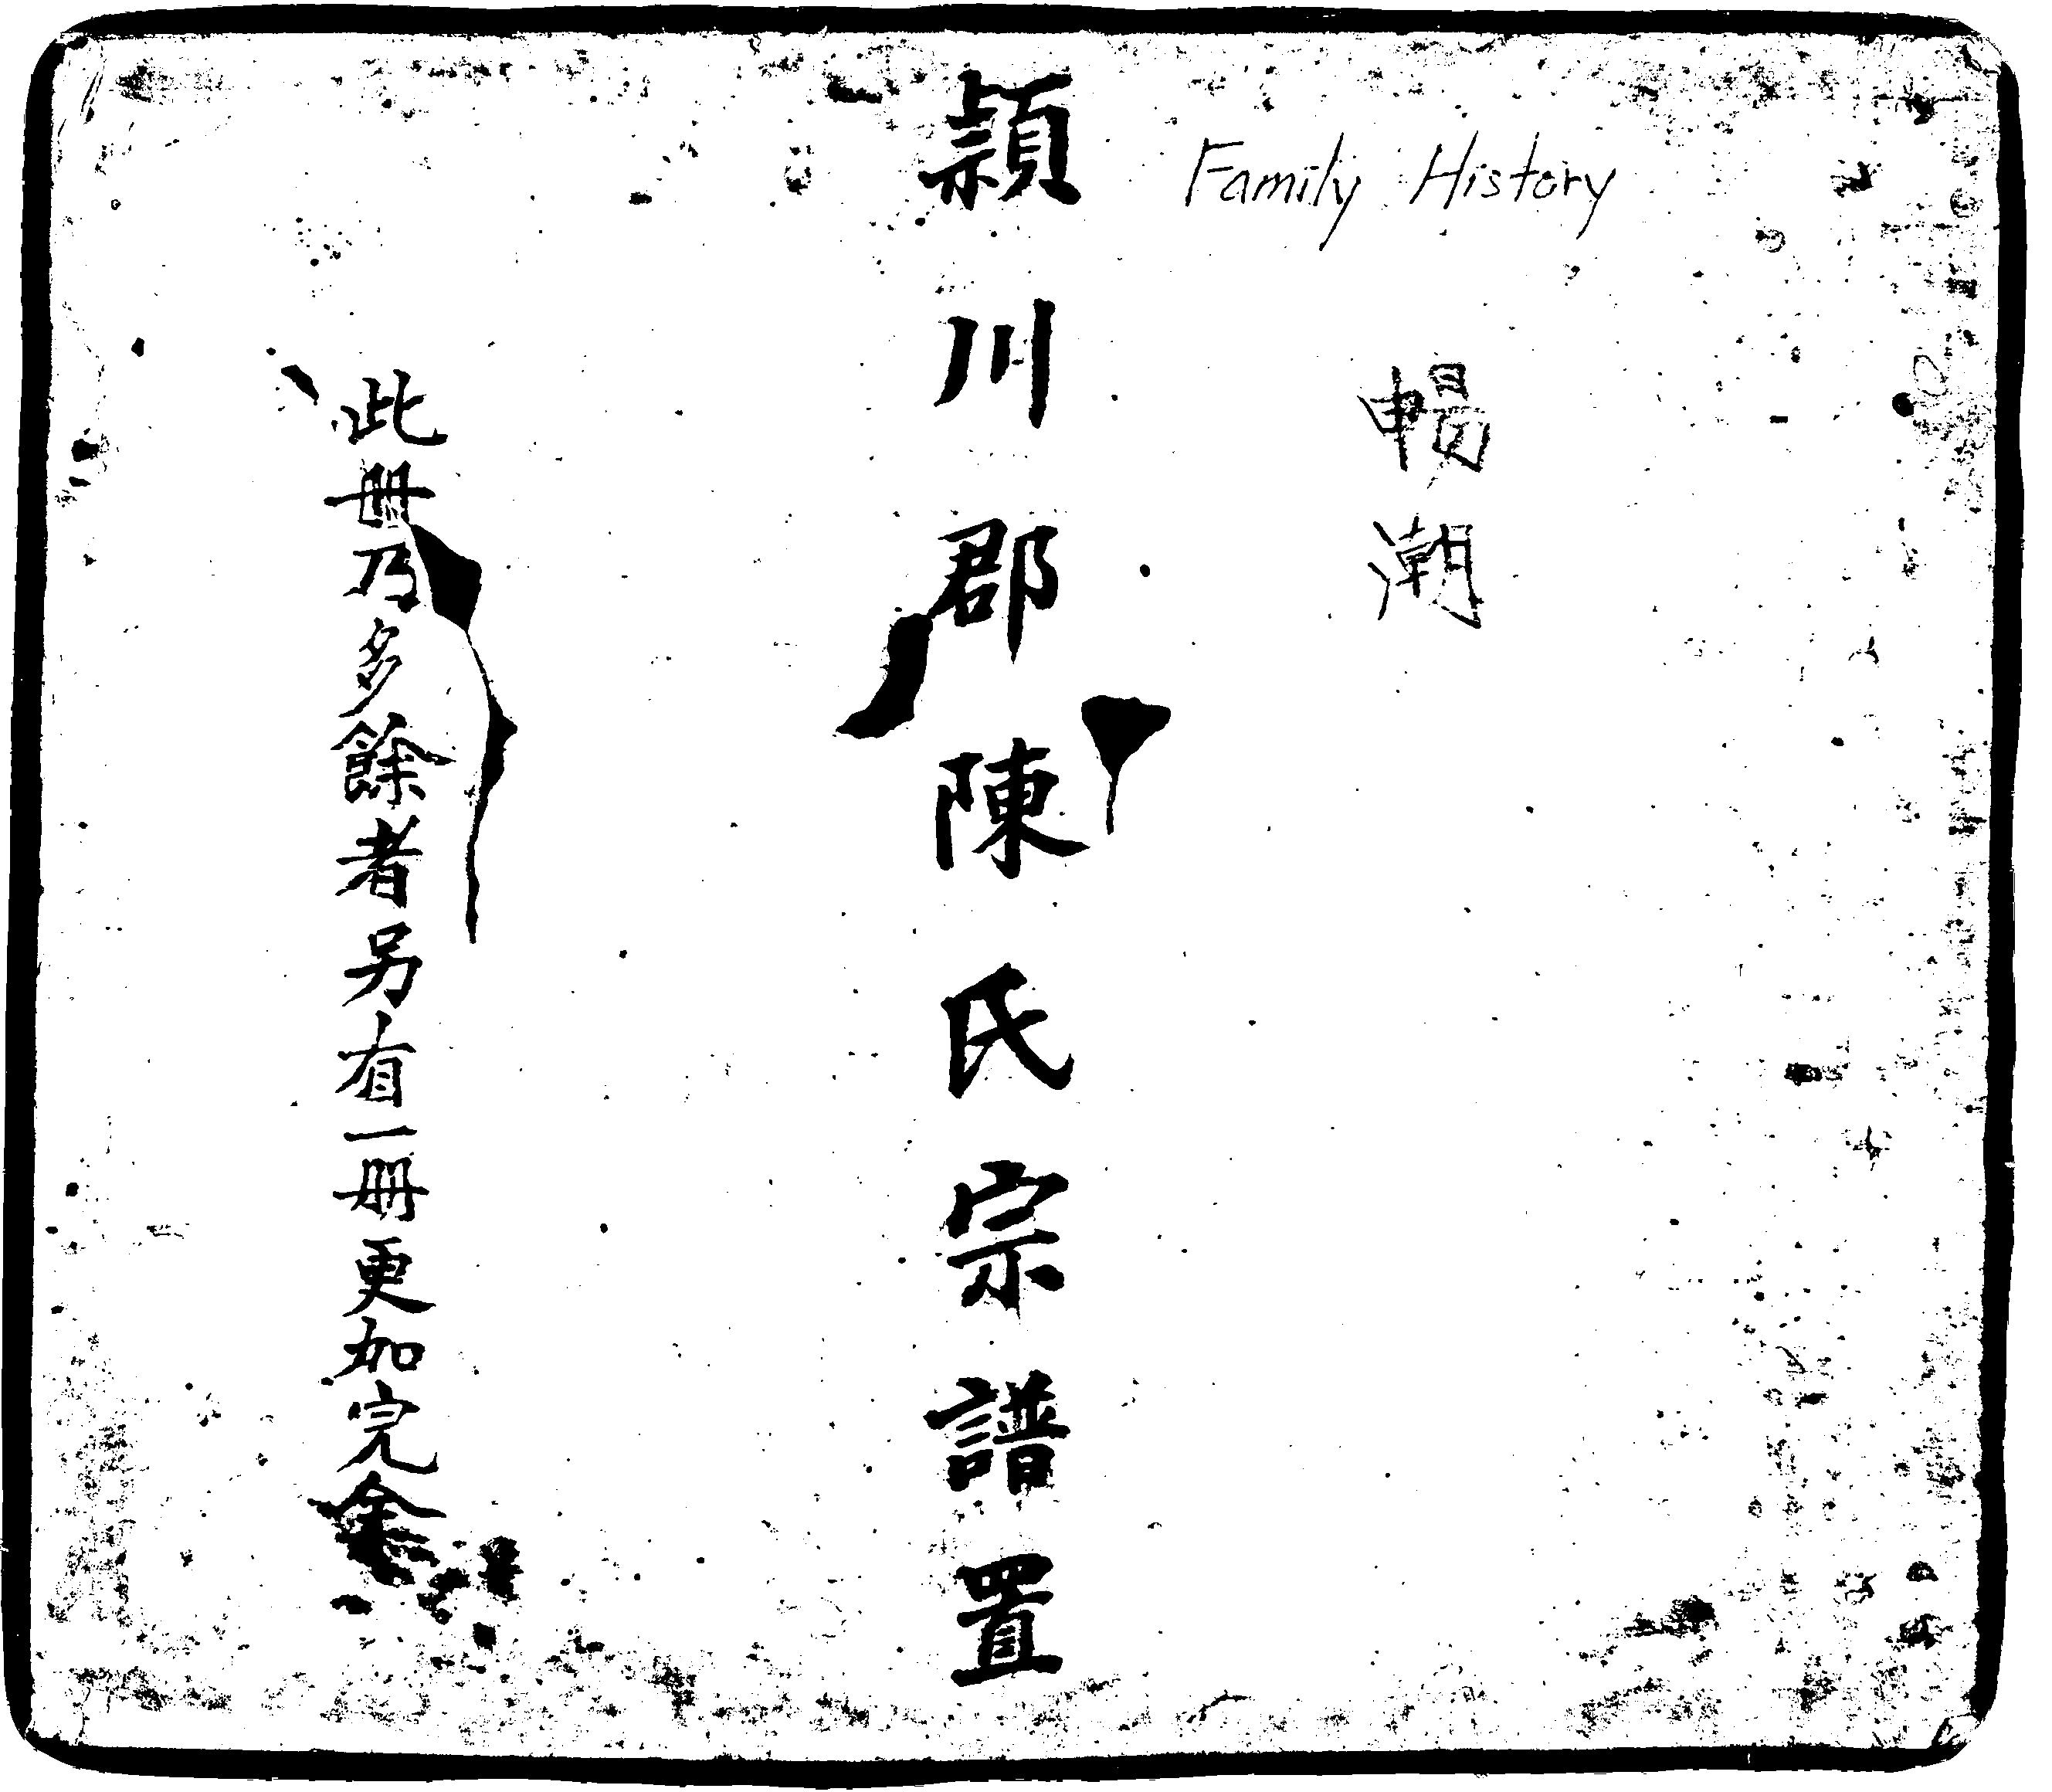 Family History
暢潮
潁川郡陳氏宗譜置
此冊乃多餘者另有一冊更加完